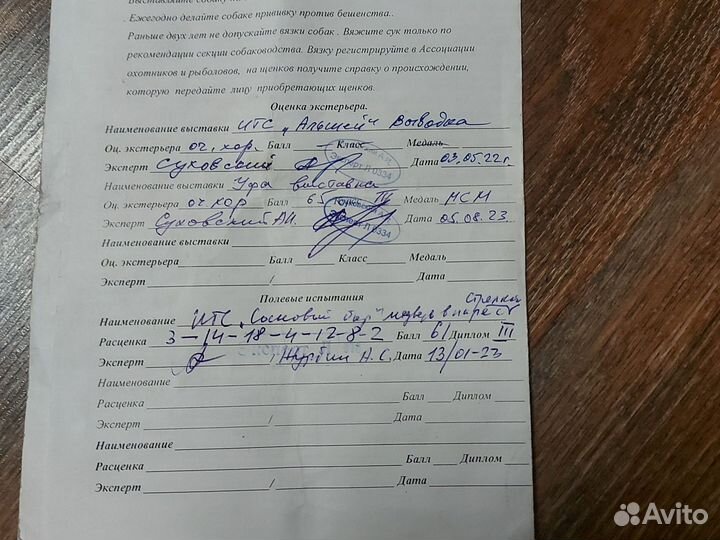 Выставляйте собаку на
. Ежегодно делайте собаке прививку против бешенства..
Раньше двух лет не допускайте вязки собак . Вяжите сук только по
рекомендации секции собаководства. Вязку регистрируйте в Ассоциации
охотников и рыболовов, на щенков получите справку о происхождении,
которую передайте лицу приобретающих щенков.
Оценка экстерьера.
Наименование выставки ИТС „Альшей" Выводка
Оц. экстерьера оч, хор. Балл — Класс — Медаль —
Эксперт Суховский Дата 03.05.22г.
Эксперт П 0334
Наименование выставки Уфа выставка
Оц. экстерьера оч хор Балл 65 Класс IV Медаль НСМ
Эксперт Суховский А.Н. Дата 05.08.23.
Эксперт П 0334
Наименование выставки
Оц. экстерьера Балл Класс Медаль
Эксперт / Дата
Полевые испытания
Наименование ИТС „Сосновый бор" медведь
Расценка 3-14-18-4-12-8-2 Балл 61 Диплом III
Эксперт / А.С. Дата 13/01-23
Наименование
Расценка Балл Диплом
Эксперт / Дата
Наименование
Расценка Балл Диплом
Эксперт / Дата
Avito